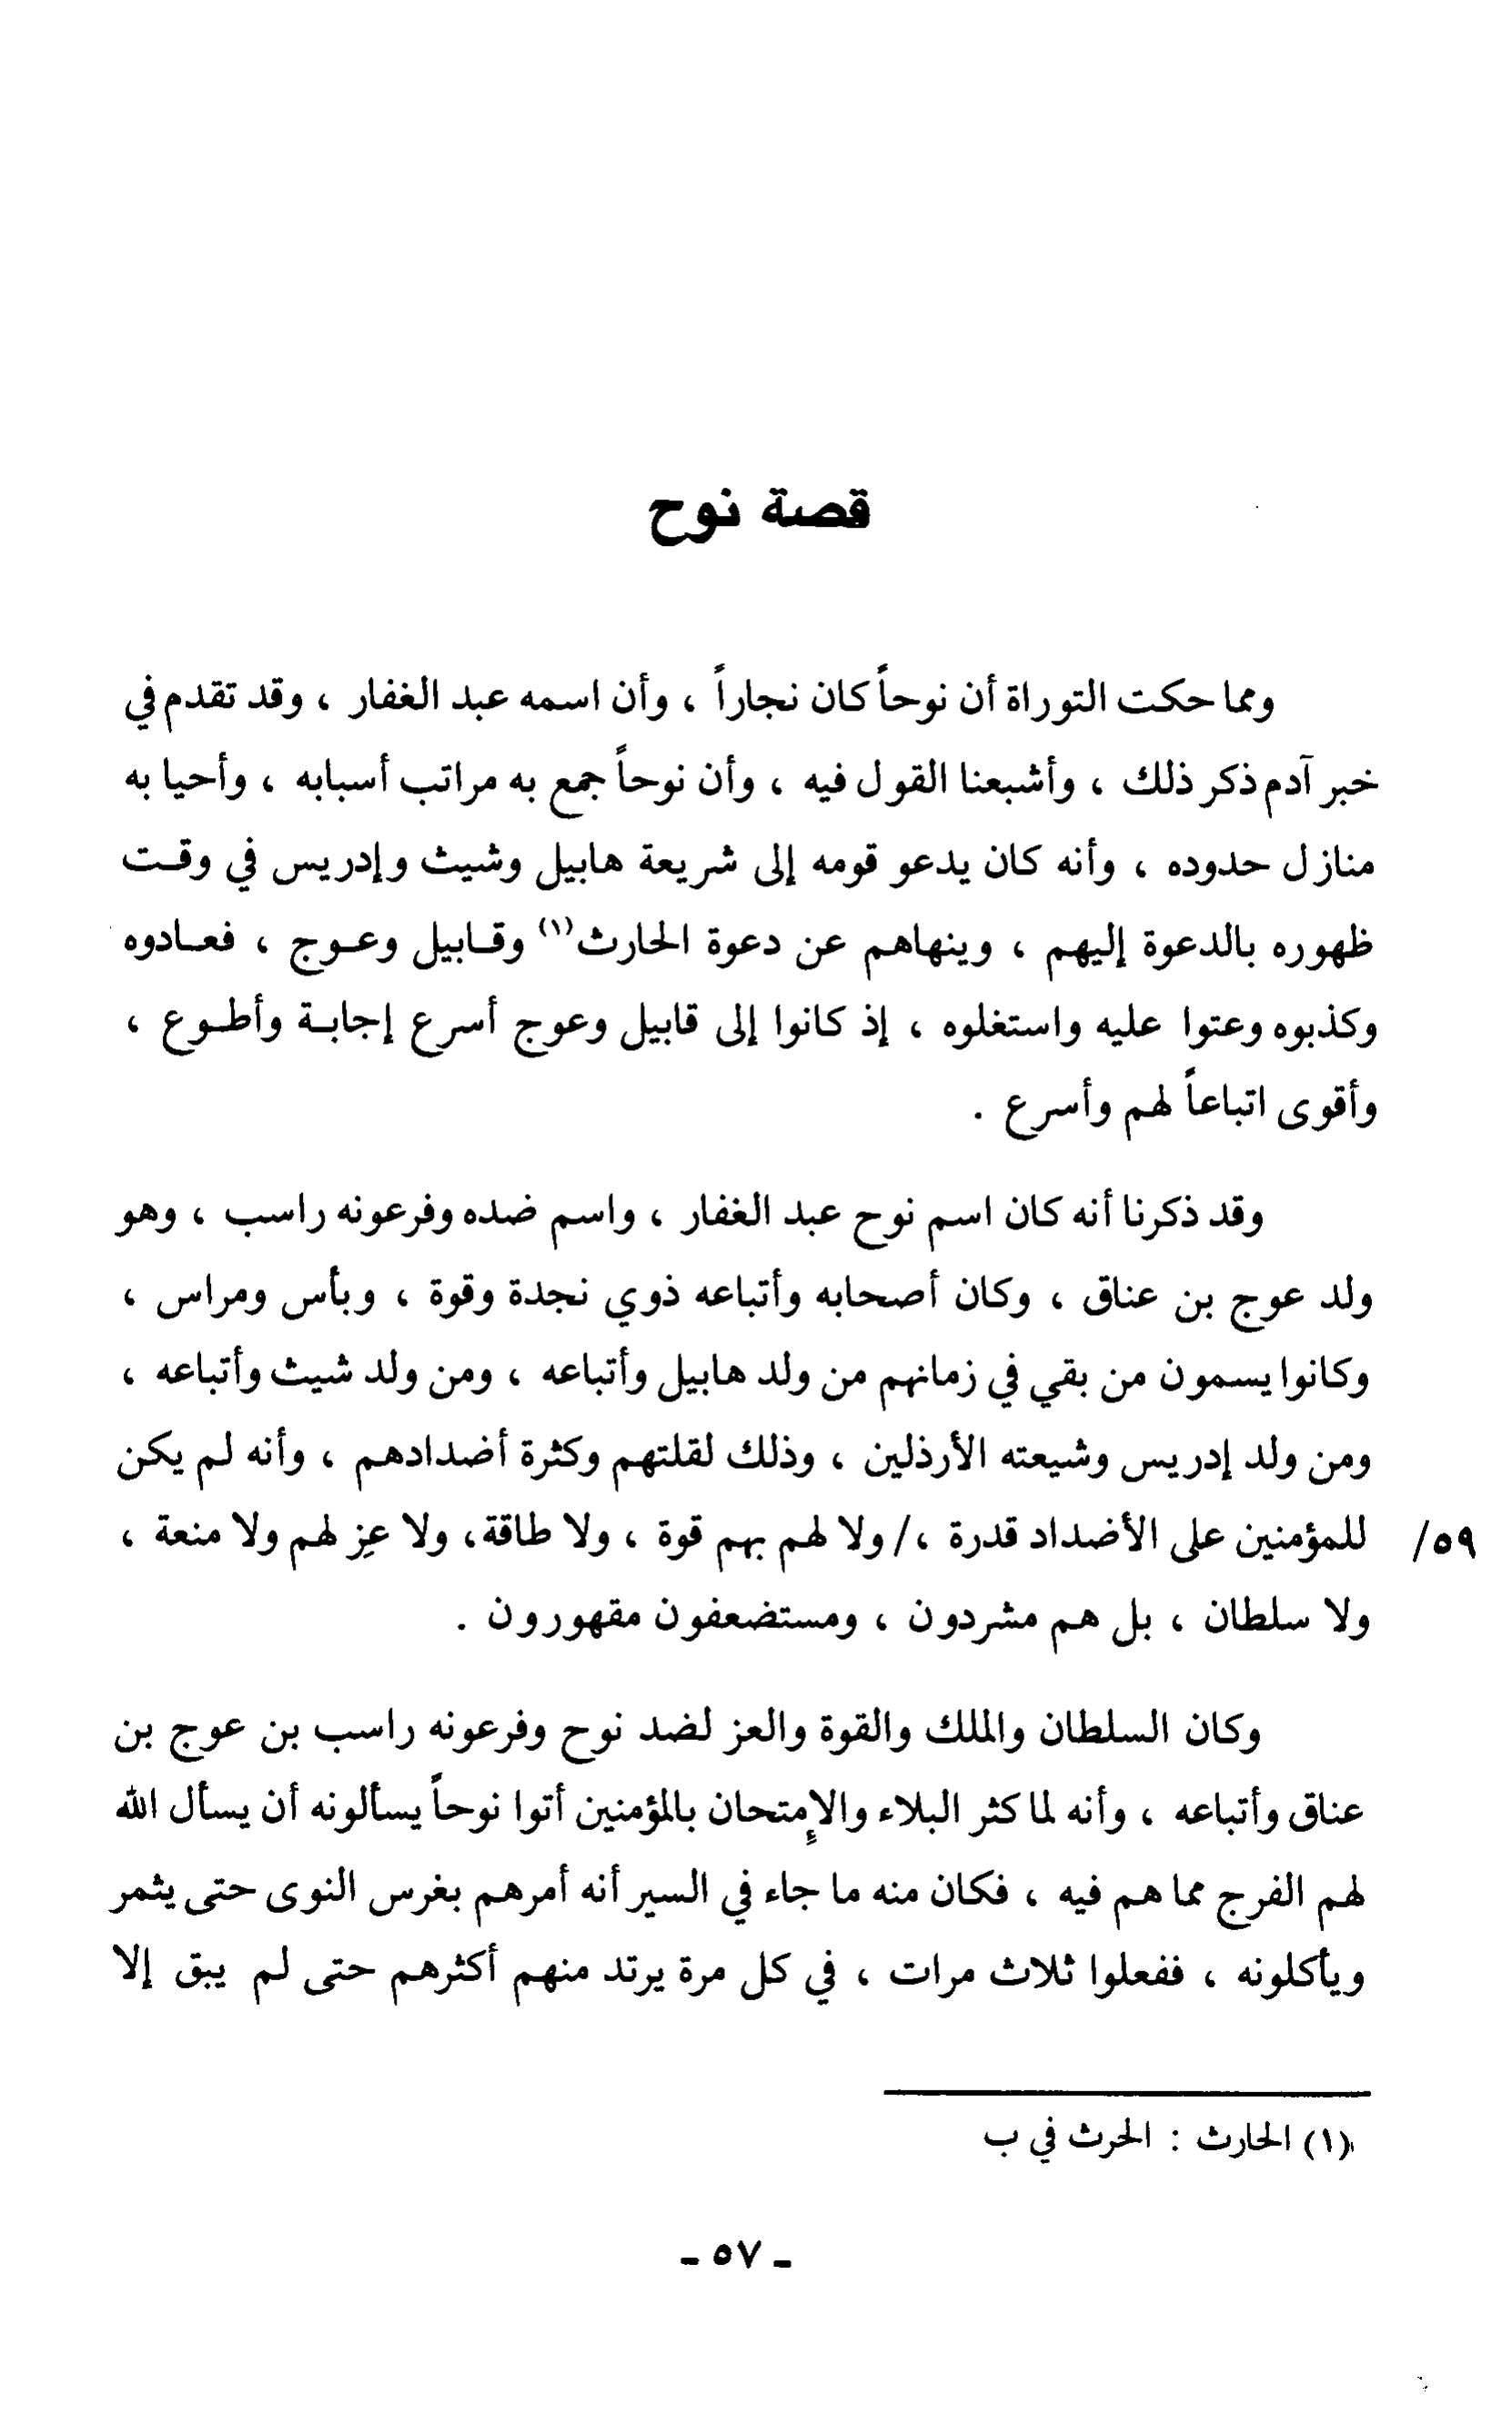 قصة نوح
ومما حكت التوراة أن نوحاً كان نجاراً ، وأن اسمه عبد الغفار ، وقد تقدم في
خبر آدم ذكر ذلك ، وأشبعنا القول فيه ، وأن نوحاً جمع به مراتب أسبابه ، وأحيا به
منازل حدوده ، وأنه كان يدعو قومه إلى شريعة هابيل وشيث وإدريس في وقت
ظهوره بالدعوة إليهم ، وينهاهم عن دعوة الحارث(١) وقابيل وعوج ، فعادوه
وكذبوه وعتوا عليه واستغلوه ، إذ كانوا إلى قابيل وعوج أسرع إجابة وأطوع ،
وأقوى اتباعاً لهم وأسرع .
وقد ذكرنا أنه كان اسم نوح عبد الغفار ، واسم ضده وفرعونه راسب ، وهو
ولد عوج بن عناق ، وكان أصحابه وأتباعه ذوي نجدة وقوة ، وبأس ومراس ،
وكانوا يسمون من بقي في زمانهم من ولد هابيل وأتباعه ، ومن ولد شيث وأتباعه ،
ومن ولد إدريس وشيعته الأرذلين ، وذلك لقلتهم وكثرة أضدادهم ، وأنه لم يكن
٥٩/ للمؤمنين على الأضداد قدرة ،/ ولا لهم بهم قوة ، ولا طاقة، ولا عِز لهم ولا منعة ،
ولا سلطان ، بل هم مشردون ، ومستضعفون مقهورون .
وكان السلطان والملك والقوة والعز لضد نوح وفرعونه راسب بن عوج بن
عناق وأتباعه ، وأنه لما كثر البلاء والإمتحان بالمؤمنين أتوا نوحاً يسألونه أن يسأل الله
لهم الفرج مما هم فيه ، فكان منه ما جاء في السير أنه أمرهم بغرس النوى حتى يثمر
ويأكلونه ، ففعلوا ثلاث مرات ، في كل مرة يرتد منهم أكثرهم حتى لم يبق إلا
(١) الحارث : الحرث في ب
- ٥٧ -